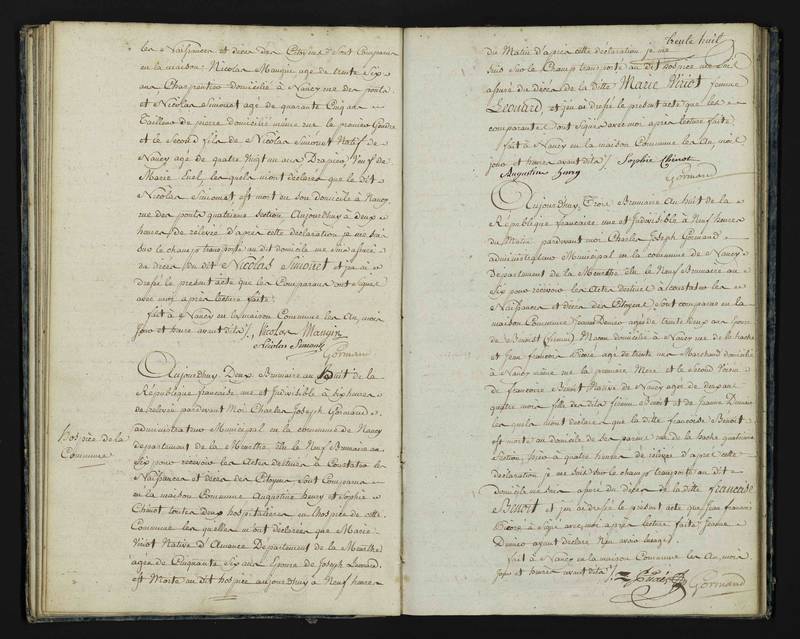 les Naissances et décès des Citoyens Sont Comparus
en la maison : Nicolas Mangin agé de trente Six
ans Charpentier domicilié à Nancy rue des ponts
et Nicolas Simonet agé de quarante Cinq ans
Tailleur de pierre domicilié même rue le premier Gendre
et le Second fils de Nicolas Simonet Natif de
Nancy agé de quatre Vingt un ans Drapier, Veuf de
Marie les quels m'ont déclaré que le dit
Nicolas Simonet est mort en son domicile à Nancy
rue des ponts quatrieme Section Aujourdhuy à deux
heures de relevée d'après cette déclaration je me suis
sur le champ transporté au dit domicile me suis assuré
du décès du dit Nicolas Simonet et j'en ai
dressé le présent acte que les Comparans ont signé
avec moi après lecture faite.
fait à Nancy en la maison Commune les An, mois
Jour et heure avant dits %. Nicolas Mangin
Nicolas Simonet
Gormand
Aujourdhuy Deux Brumaire an huit de la
République française une et Indivisible à Six heures
de relevée pardevant Moi Charles Joseph Gormand
administrateur Municipal en la commune de Nancy
département de la Meurthe élu le Neuf Brumaire an
Six pour recevoir les Actes destinés à Constater les
Naissances et décès des Citoyens Sont Comparues
en la maison Commune Augustine henry et Sophie
Chinot toutes deux hospitalières en l'hospice de cette
Commune les quelles m'ont déclarées que Marie
Viriot Native d'Amance Département de la Meurthe
agée de Cinquante Six ans Epouse de Joseph Léonard
est Morte au dit hospice aujourdhuy à Neuf heures
hospice de la
Commune
trente huit
du Matin d'après cette déclaration je me
suis sur le Champ transporté au dit hospice me suis
assuré du décès de la ditte Marie Viriot femme
Léonard, et j'en ai dressé le présent acte que les
comparantes ont Signé avec moi après lecture faite.
fait à Nancy en la maison Commune les An, mois
jour et heures avant dits %. Sophie Chinot
Augustine henry
Gormand
Aujourdhuy, Trois Brumaire An huit de la
République française une et Indivisible à Neuf heures
du Matin pardevant moi Charles Joseph Gormand
administrateur Municipal en la commune de Nancy
Département de la Meurthe élu le Neuf Brumaire an
Six pour recevoir les Actes destinés à constater les
Naissances et décès des Citoyens Sont comparus en la
maison Commune Jeanne Demeo agée de trente deux ans Epouse
de Benoit Maçon domicilié à Nancy rue de la hache
et Jean françois Pierre agé de trente ans Marchand domicilié
à Nancy même rue la première Mere et le Second Voisin
de francoise Benoit Native de Nancy agée de deux ans
quatre mois fille des dits Benoit et de Jeanne Demeo
les quels m'ont déclaré que la ditte francoise Benoit
est morte au domicile de ses parens rue de la hache quatrieme
Section, hier à quatre heures de relevée d'après cette
déclaration je me suis sur le champ transporté au dit
domicile me suis assuré du décès de la ditte francoise
Benoit et j'en ai dressé le présent acte que Jean francois
Pierre à Signé avec moi après lecture faite Jeanne
Demeo ayant déclaré N'en avoir l'usage.
fait à Nancy en la maison Commune les An, mois
Jour et heures avant dits %.
Gormand